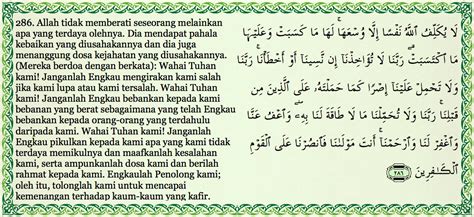 286. Allah tidak memberati seseorang melainkan
apa yang terdaya olehnya. Dia mendapat pahala
kebaikan yang diusahakannya dan dia juga
menanggung dosa kejahatan yang diusahakannya.
(Mereka berdoa dengan berkata): Wahai Tuhan
kami! Janganlah Engkau mengirakan kami salah
jika kami lupa atau kami tersalah. Wahai Tuhan
kami! Janganlah Engkau bebankan kepada kami
bebanan yang berat sebagaimana yang telah Engkau
bebankan kepada orang-orang yang terdahulu
daripada kami. Wahai Tuhan kami! Janganlah
Engkau pikulkan kepada kami apa yang kami tidak
terdaya memikulnya dan maafkanlah kesalahan
kami, serta ampunkanlah dosa kami dan berilah
rahmat kepada kami. Engkaulah Penolong kami;
oleh itu, tolonglah kami untuk mencapai
kemenangan terhadap kaum-kaum yang kafir.
لَا يُكَلِّفُ ٱللَّهُ نَفْسًا إِلَّا وُسْعَهَا لَهَا مَا كَسَبَتْ وَعَلَيْهَا
مَا ٱكْتَسَبَتْ رَبَّنَا لَا تُؤَاخِذْنَآ إِن نَّسِينَآ أَوْ أَخْطَأْنَا رَبَّنَا
وَلَا تَحْمِلْ عَلَيْنَآ إِصْرًا كَمَا حَمَلْتَهُۥ عَلَى ٱلَّذِينَ مِن
قَبْلِنَا رَبَّنَا وَلَا تُحَمِّلْنَا مَا لَا طَاقَةَ لَنَا بِهِۦ وَٱعْفُ عَنَّا
وَٱغْفِرْ لَنَا وَٱرْحَمْنَآ أَنتَ مَوْلَىٰنَا فَٱنصُرْنَا عَلَى ٱلْقَوْمِ
ٱلْكَٰفِرِينَ ٢٨٦